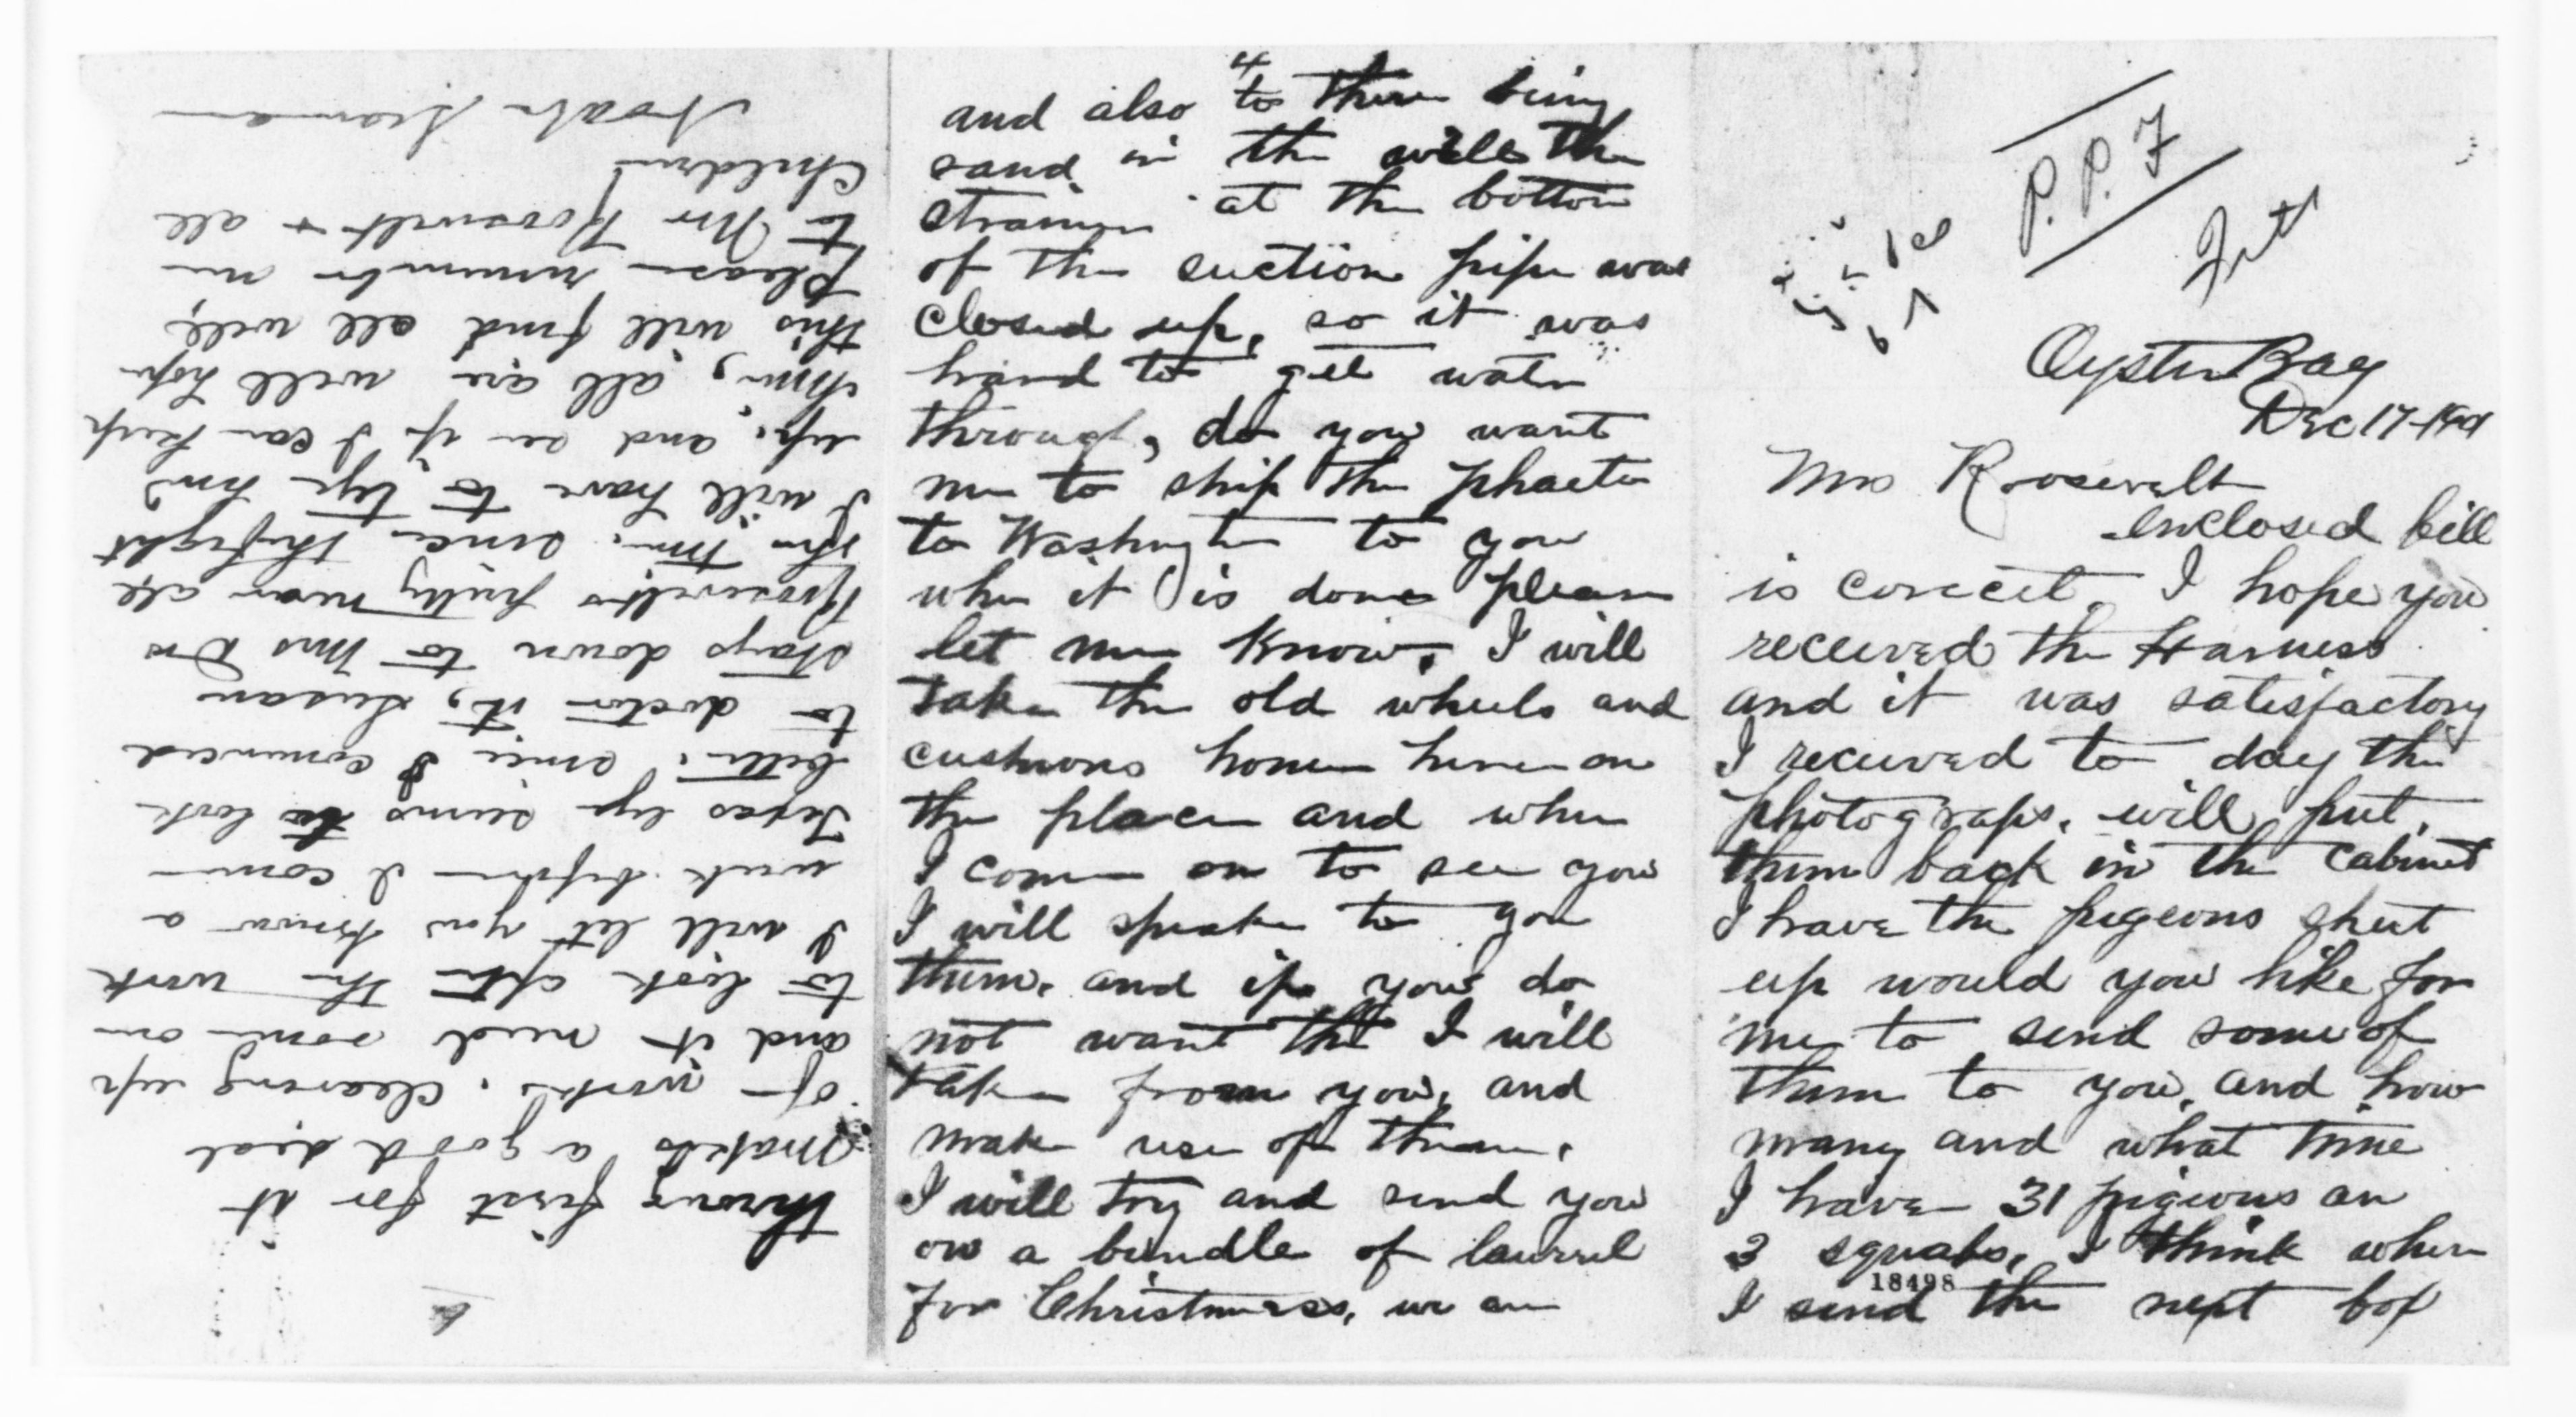 P.P.F
Oyster Bay
Dec 17-1901
Mrs Roosevelt
enclosed bill
is correct, I hope you
received the Harness
and it was satisfactory
I received to day the
photograps, will put
them back in the cabinet
I have the pigeons shut
up would you like for
me to send some of
them to you, and how
many and what time
I have 31 pigeons an
3 squabs, I think when
I send the next box
18498
4
and also to there being
sand in the well the
strainer at the bottom
of the suction pipe was
closed up, so it was
hard to get water
through, do you want
me to ship the phaeton
to Washington to you
when it is done please
let me know, I will
take the old wheels and
cushions home here on
the place and when
I come on to see you
I will speak to you
them, and if you do
not want the I will
take from you, and
make use of them,
I will try and send you
on a bundle of laurel
for Christmass, we are
6
throug first for it
makes a good deal
of work, clearing up
and it need some one
to look after the work
I will let you know a
week before I come
Texas eye seems to look
better, since I commenced
to doctor it, Susan
stays down to Mrs Drs
Roosevelts pretty near all
the time, since the fight
I will have to tye him
up, and see if I can keep
him, all are well hope
this will find all well,
Please remember me
to Mr Roosevelt + all
Children
Noah Seaman